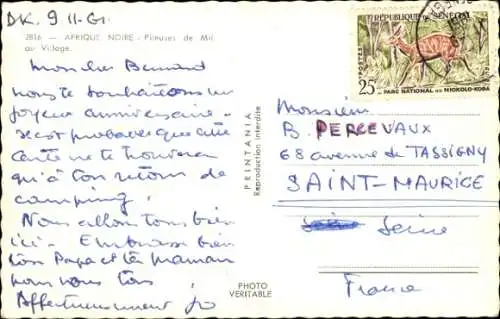 DK. 9 II-61
2816 – AFRIQUE NOIRE - Pileuses de Mil
au Village.
Mon cher Bernard
nous te souhaitons un
joyeux anniversaire.
il est probable que cette
carte ne te trouvera
qu'à ton retour de
camping.
Nous allons tous bien
ici. Embrasse bien
ton Papa et ta maman
pour nous tous
Affectueusement Jo
PRINTANIA
Reproduction interdite
PHOTO
VERITABLE
REPUBLIQUE DU SENEGAL
POSTES
25F
PARC NATIONAL DU NIOKOLO-KOBA
Monsieur
B. PERCEVAUX
68 avenue de TASSIGNY
SAINT-MAURICE
Seine
France